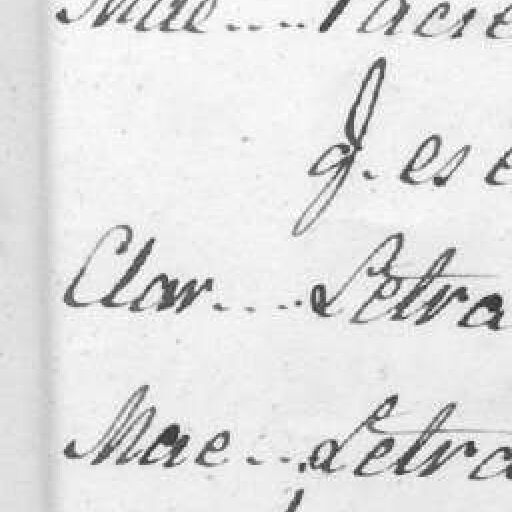 Mae....Pacie
q. es e
Clar.....Letra
Mae....Letra